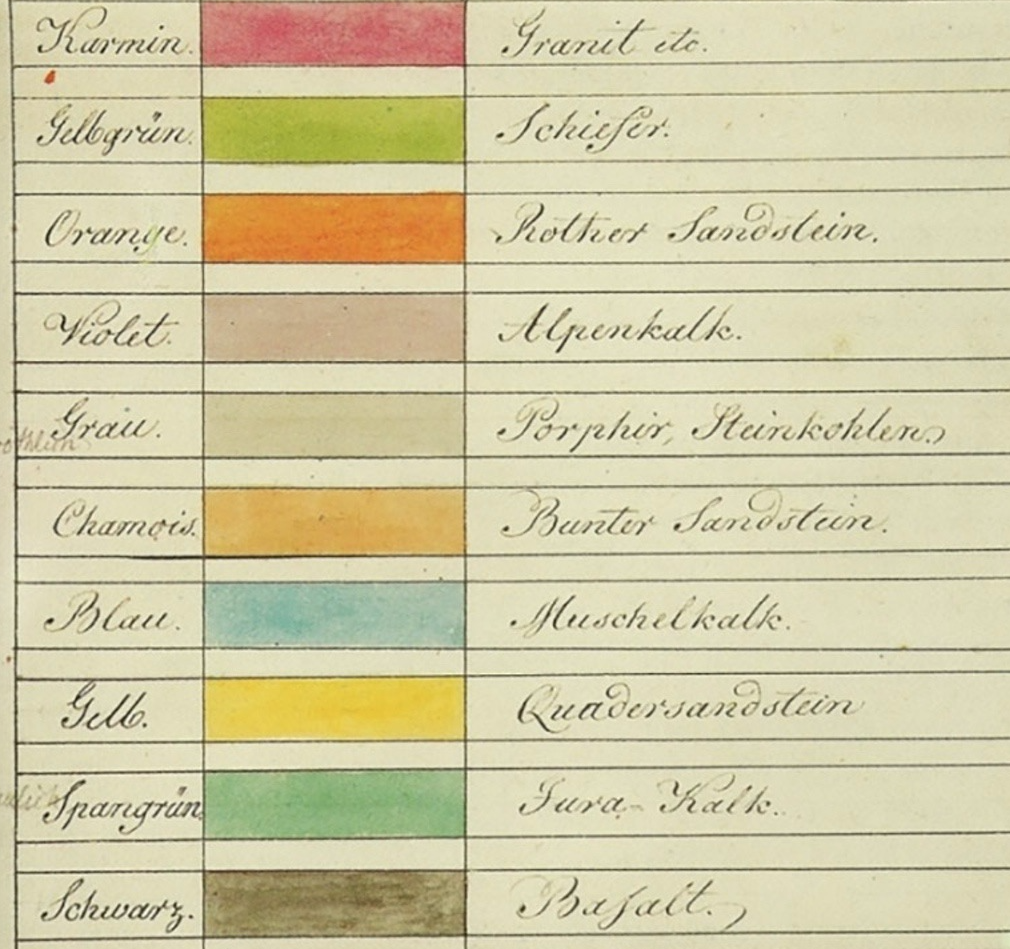 Karmin. Granit etc.
Gelbgrün. Schiefer.
Orange. Rother Sandstein.
Violet. Alpenkalk.
Grau. Porphir, Steinkohlen.
Chamois. Bunter Sandstein.
Blau. Muschelkalk.
Gelb. Quadersandstein
Spangrün. Jura-Kalk.
Schwarz. Basalt.